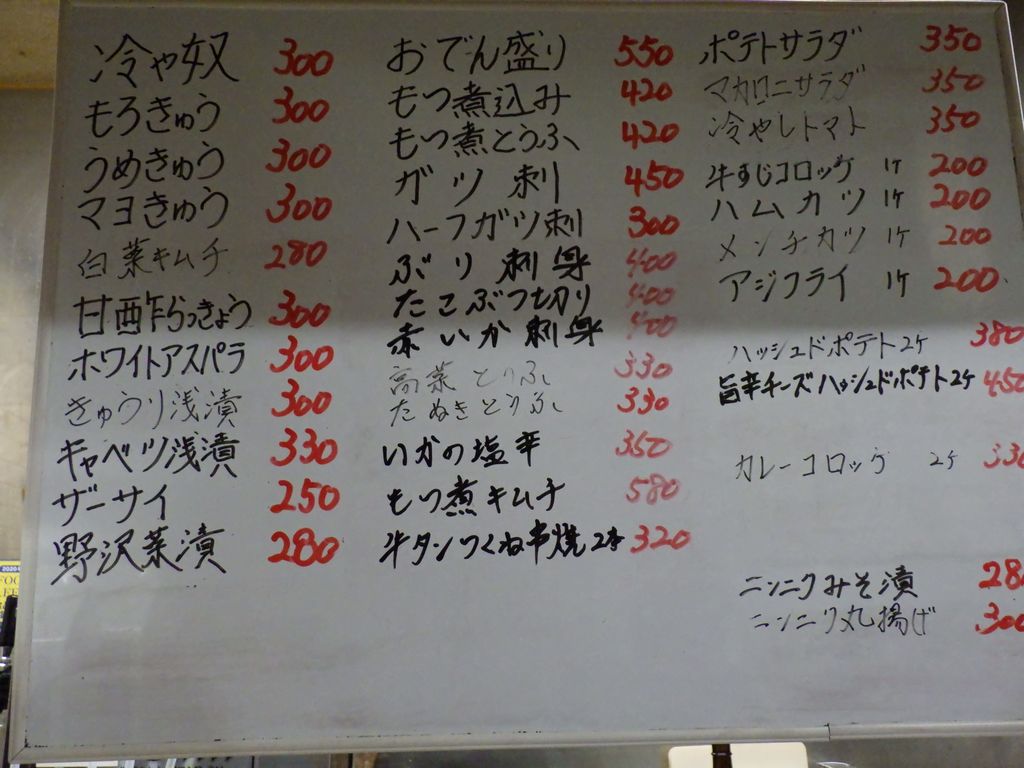 冷や奴 300
もろきゅう 300
うめきゅう 300
マヨきゅう 300
白菜キムチ 280
甘酢らっきょう 300
ホワイトアスパラ 300
きゅうり浅漬 300
キャベツ浅漬 330
ザーサイ 250
野沢菜漬 280
おでん盛り 550
もつ煮込み 420
もつ煮とうふ 420
ガツ刺 450
ハーフガツ刺 300
ぶり刺身 400
たこぶつ切り 400
赤いか刺身 400
高菜とうふ 330
たぬきとうふ 330
いかの塩辛 350
もつ煮キムチ 580
牛タンつくね串焼2本 320
ポテトサラダ 350
マカロニサラダ 350
冷やしトマト 350
牛すじコロッケ 1ケ 200
ハムカツ 1ケ 200
メンチカツ 1ケ 200
アジフライ 1ケ 200
ハッシュドポテト2ケ 380
旨辛チーズハッシュドポテト2ケ 450
カレーコロッケ 2ケ 330
ニンニクみそ漬 28
ニンニク丸揚げ 300
2020